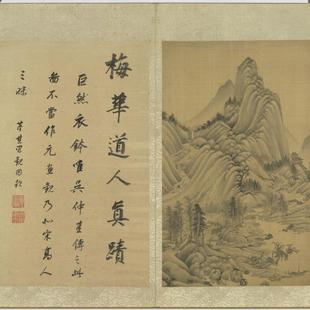 梅華道人真蹟
巨然衣鉢惟吳仲圭傳之此
啚不當作元畫觀乃北宋高人
三昧
董其昌觀因題